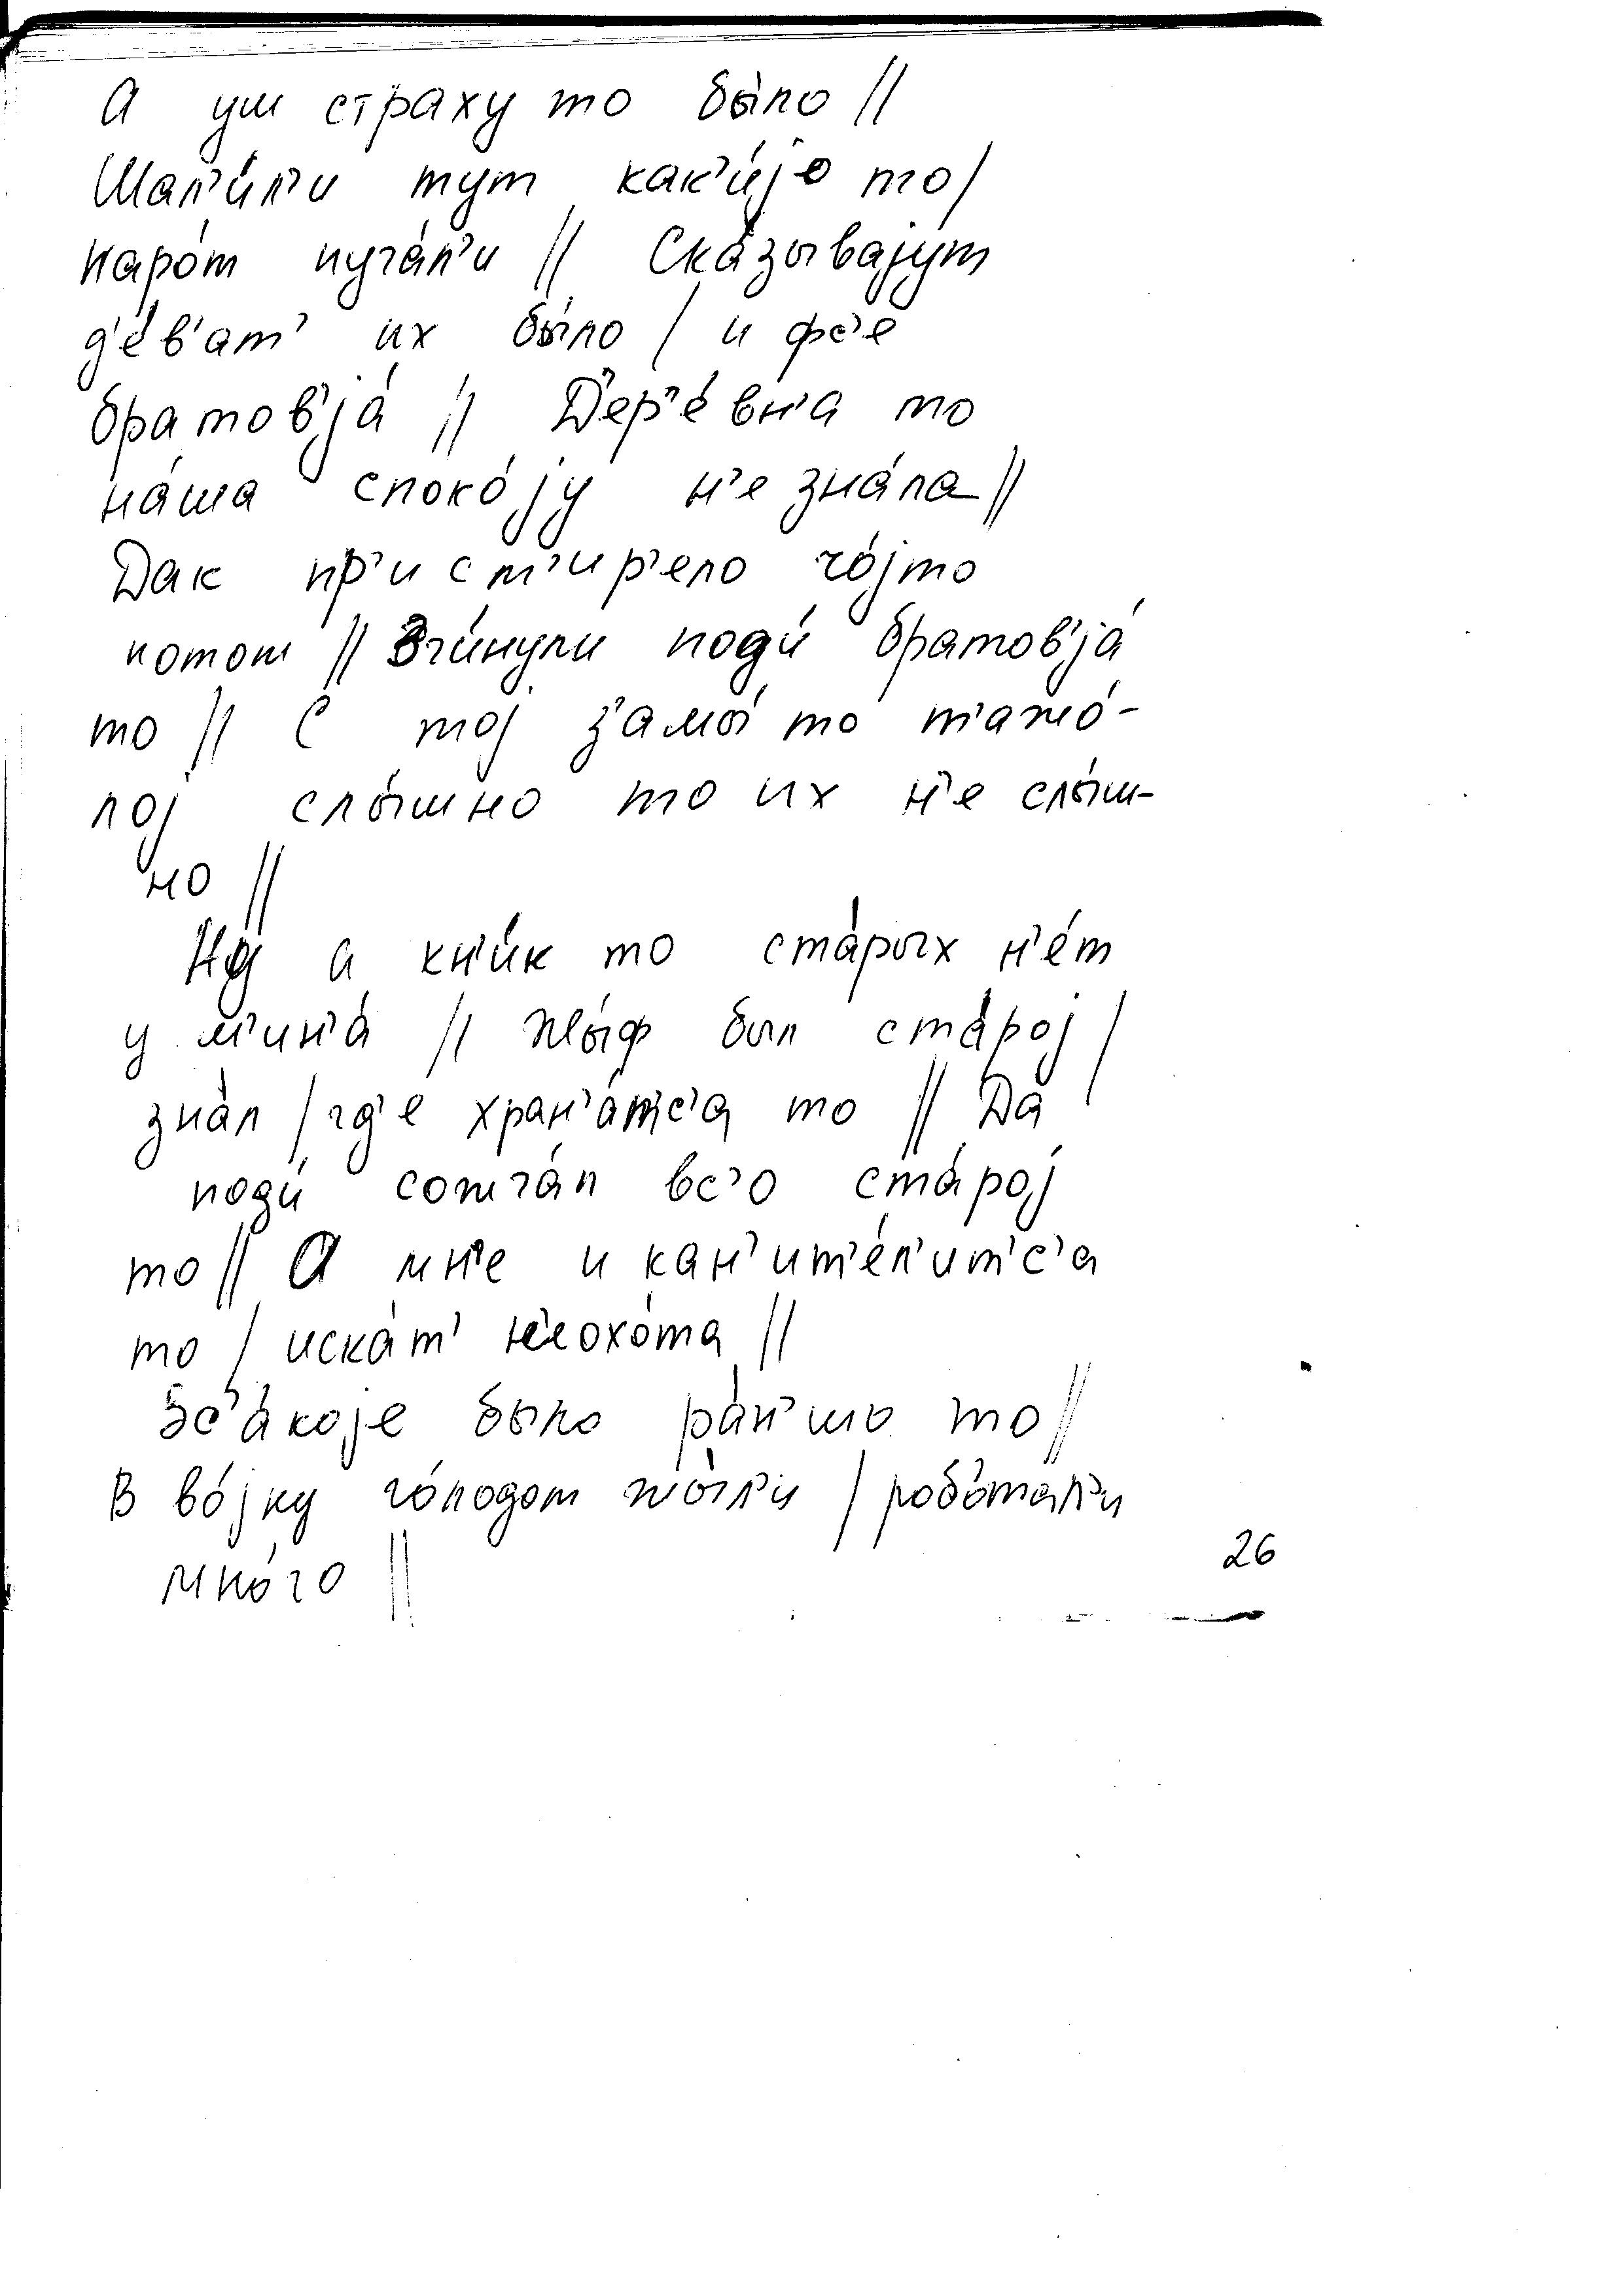 А уш страху то бы́ло //
Шал'и́л'и тут как'и́jо то /
наро́т пуга́л'и // Ска́зываjут
д'е́в'ат' их бы́ло / и фс'е
братов'jа́ // Д'ер'е́вн'а то
на́ша споко́jу н'е зна́ла //
Дак пр'ист'ир'ело чо́jто
потом // Зги́нули поди́ братов'jа́
то // С тоj з'амы́ то т'ажо́-
лоj слы́шно то их н'е слы́ш-
но //
Ну а кн'и́к то ста́рых н'е́т
у м'ин'а́ // Жы́ф был ста́роj /
зна́л / гд'е хран'а́тс'а то // Да
поди́ сожга́л вс'о ста́роj
то // А мн'е и кан'ит'е́л'итс'а
то / иска́т' н'еохо́та //
Вс'а́коjе было ра́н'шо то //
В во́jну го́лодом жы́л'и / робо́тал'и
мно́го //
26